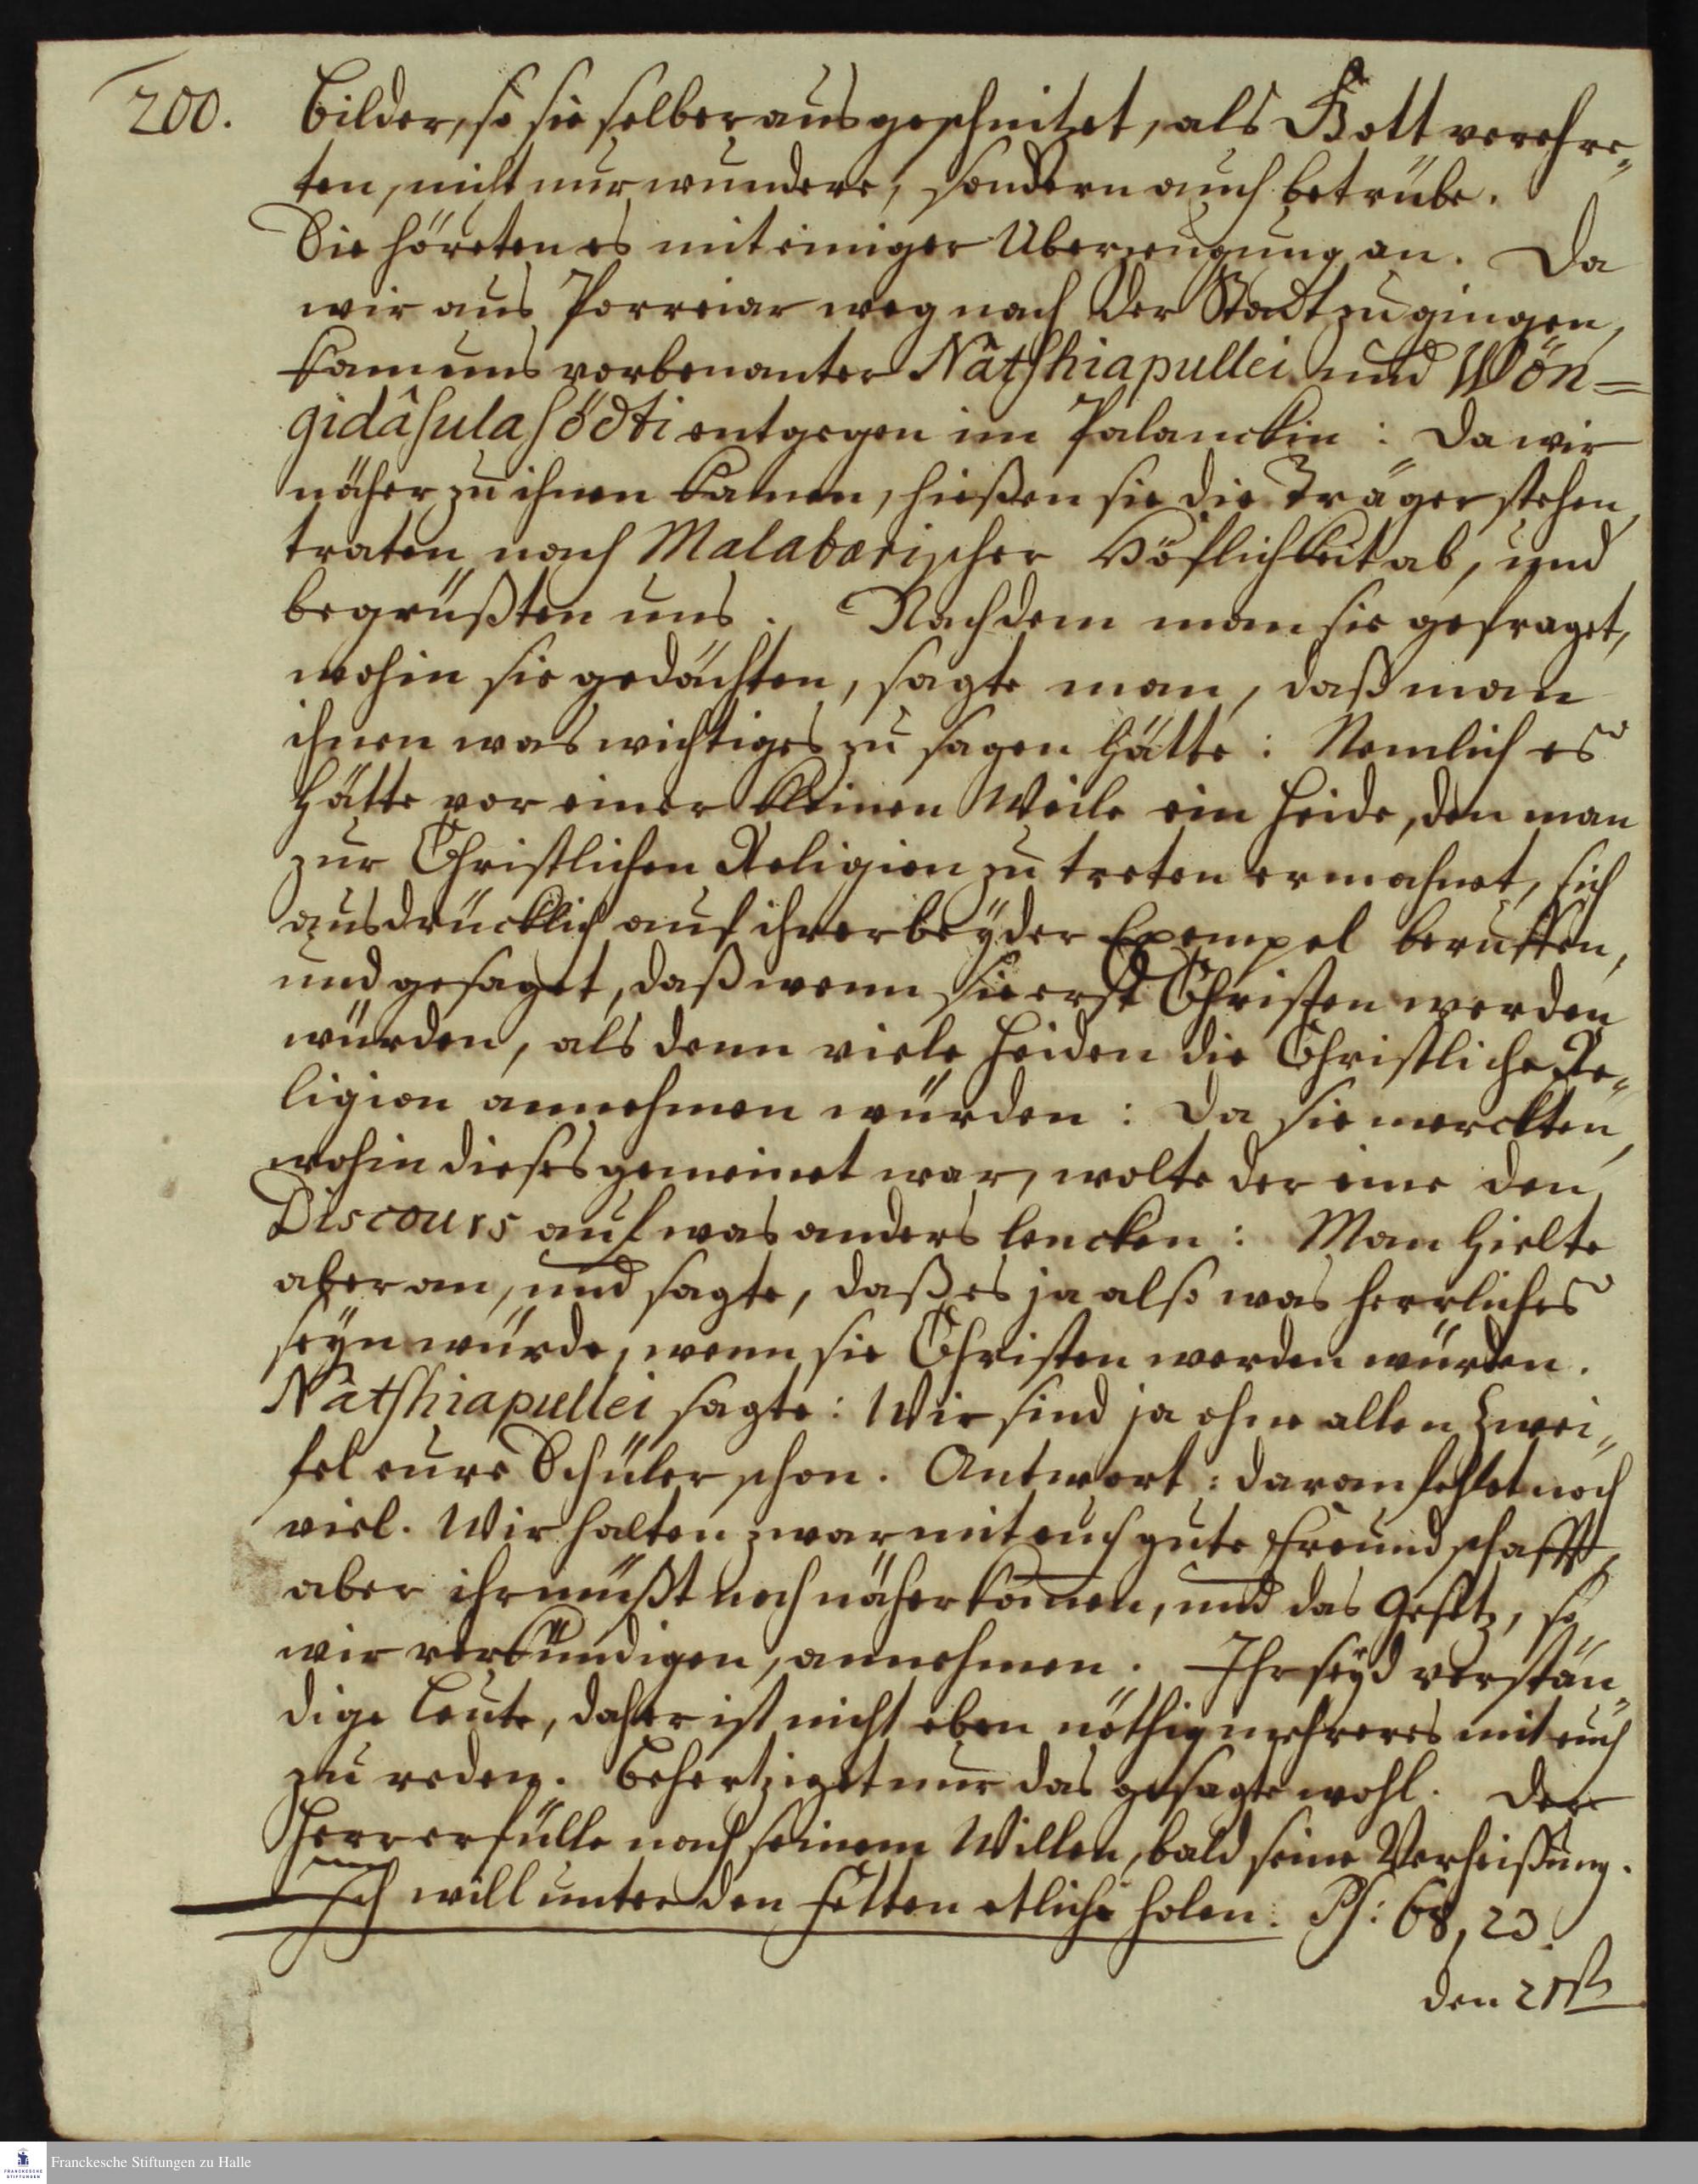 200.
Bilder, so sie selber ausgeschnitzet, als Gott verehre„
ten, nicht nur wundere, sondern auch betrübe.
Sie höreten es mit einiger Uberzeugung an. Da
wir aus Porreiar weg nach der Stadt zu gingen,
kam uns vorbenanter Nâtshiapullei und Wön=
gidâsulasödti entgegen im Palanckin: Da wir
näher zu ihnen kamen, hießen sie die Träger stehen,
traten nach Malabarischer Höflichkeit ab, und
begrüßten uns. Nachdem man sie gefraget,
wohin sie gedächten, sagte man, daß man
ihnen was wichtiges zu sagen hätte: Nemlich es
hätte vor einer kleinen Weile ein Heide, den man
zur Christlichen Religion zu treten ermahnet, sich
ausdrücklich auf ihrer beyder Exempel beruffen,
und gesaget, daß wenn sie erst Christen werden
würden, als denn viele Heiden die Christliche Re„
ligion annehmen würden: Da sie merckten,
wohin dieses gemeinet war, wolte der eine den
Discours auf was anders lencken: Man hielte
aber an, und sagte, daß es ja also was herrliches
seyn würde, wenn sie Christen werden würden.
Nâtshiapullei sagte: Wir sind ja ohne allen Zwei„
fel eure Schüler schon. Antwort: daran fehlet noch
viel. Wir halten zwar mit euch gute Freundschafft,
aber ihr müßt noch näher kom̄en, und das Gesetz, so
wir verkündigen, annehmen. Ihr seyd verstän„
dige Leute, daher ist nicht eben nöthig mehreres mit euch
zu reden. Behertziget nur das gesagte wohl. Der
Herr erfülle nach seinem Willen, bald seine Verheißung.
Ich will unter den Fetten etliche holen. Ps: 68, 23.
den 21st
Franckesche Stiftungen zu Halle
FRANCKESCHE
STIFTUNGEN